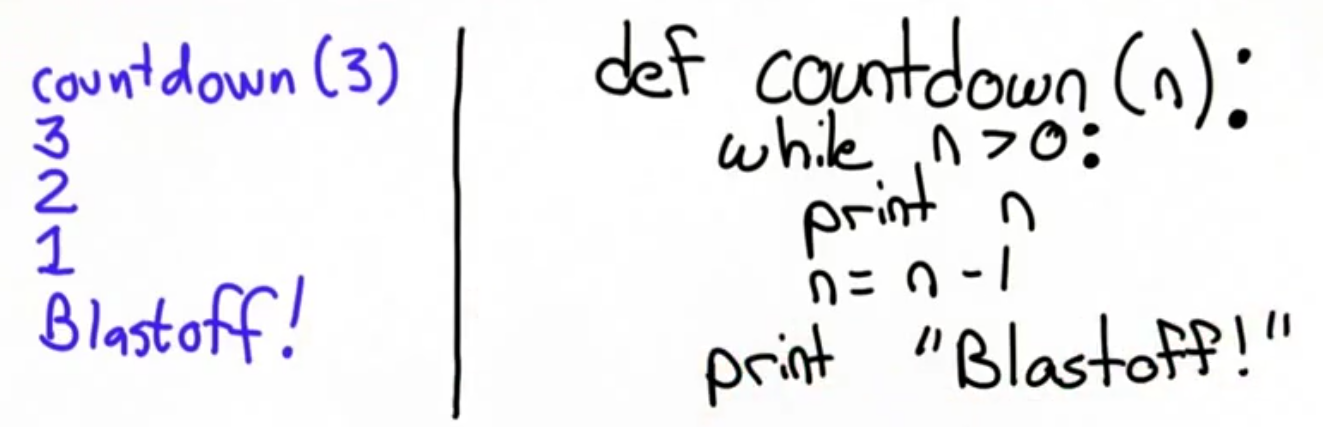 countdown (3)
3
2
1
Blastoff!
def countdown (n):
    while n > 0:
        print n
        n = n - 1
    print "Blastoff!"